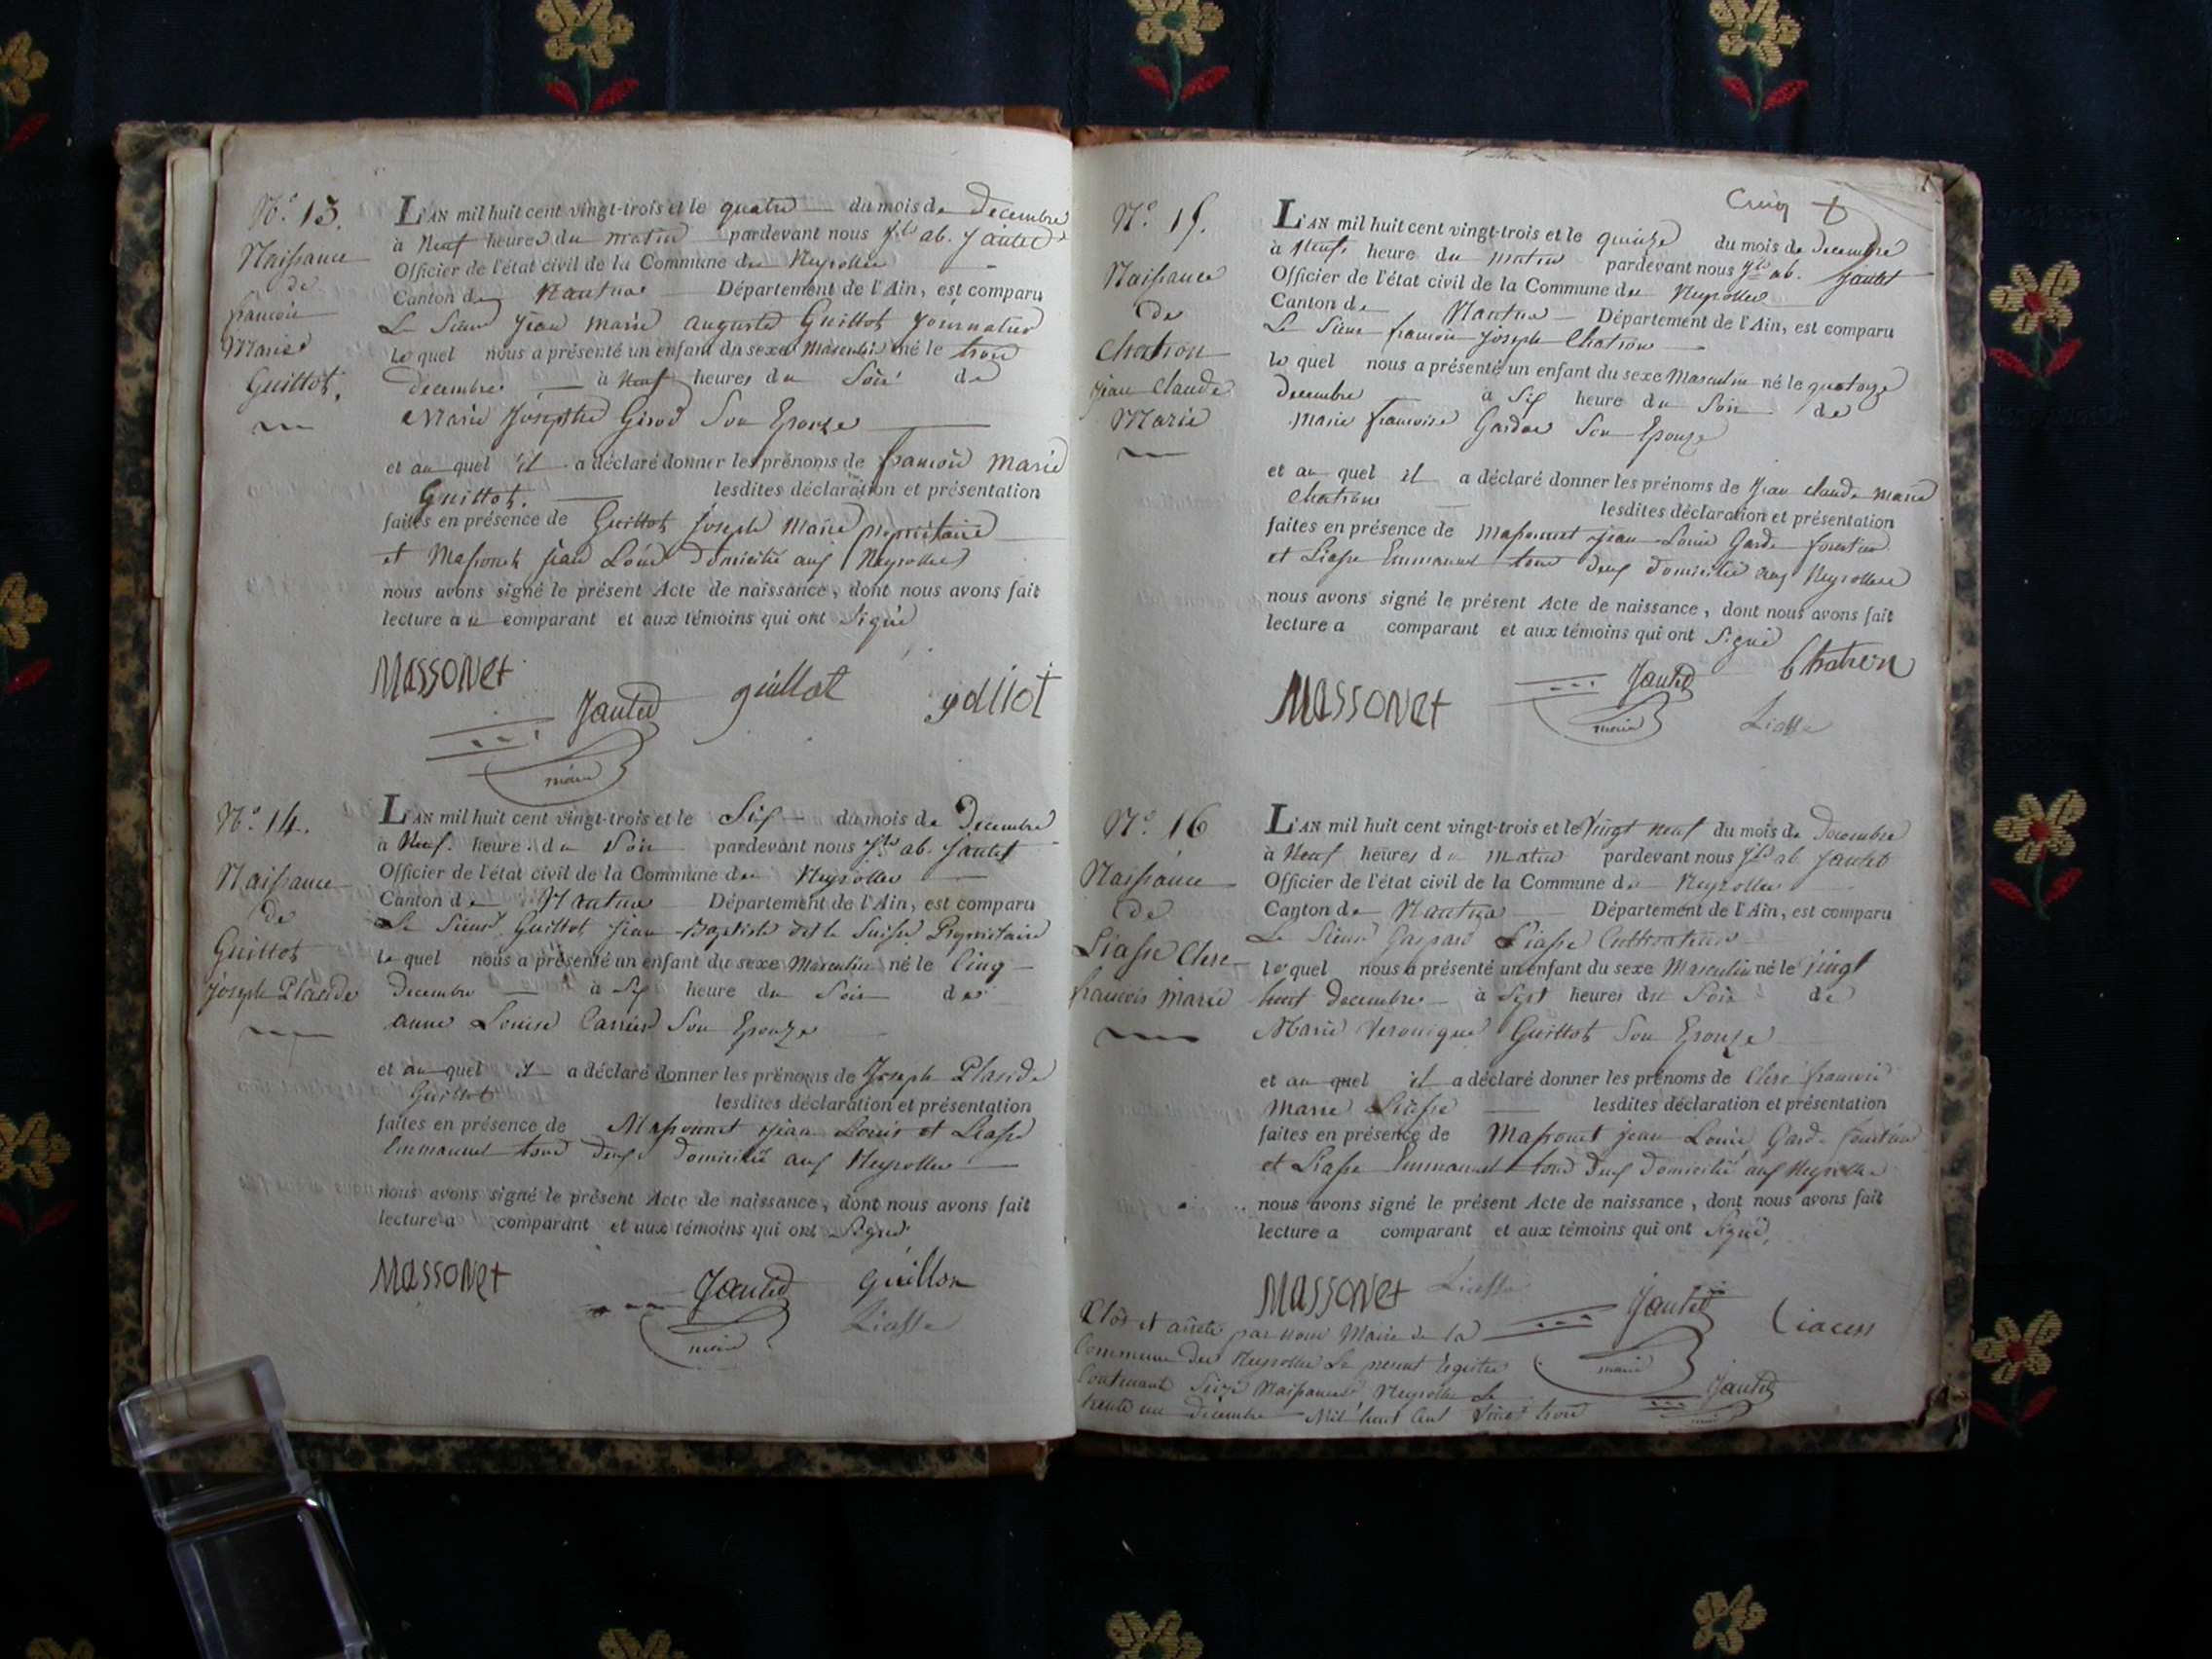 N.° 13.
Naissance
de
francois
Marie
Guillot.
L'AN mil huit cent vingt-trois et le quatre du mois de decembre
à Neuf heures du matin pardevant nous ab. Jantet
Officier de l'état civil de la Commune des Neyrolles
Canton de Nantua Département de l'Ain, est comparu
Le Sieur Jean Marie auguste Guillot Journalier
lequel nous a présenté un enfant du sexe Masculin né le trois
decembre à Neuf heures du Soir de
Marie Josephte Girod Son Epouze
et au quel il a déclaré donner les prénoms de francois Marie
Guillot. lesdites déclaration et présentation
faites en présence de Guillot Joseph Marie propriétaire
et Massonet jean Louis domicilié aux Neyrolles
nous avons signé le présent Acte de naissance, dont nous avons fait
lecture au comparant et aux témoins qui ont Signé
Massonet Jantet guillot
maire
N.° 14.
Naissance
de
Guillot
joseph Placide
L'AN mil huit cent vingt-trois et le Six du mois de Decembre
à Neuf heure du Soir pardevant nous ab. Jantet
Officier de l'état civil de la Commune des Neyrolles
Canton de Nantua Département de l'Ain, est comparu
Le Sieur Guillot jean Baptiste dit le Suisse Propriétaire
lequel nous a présenté un enfant du sexe Masculin né le Cinq
Decembre à Six heure du Soir de
anne Louise Carrier Son Epouze
et au quel il a déclaré donner les prénoms de Joseph Placide
Guillot lesdites déclaration et présentation
faites en présence de Massonnet jean Louis et Liasse
Emmanuel tous deux domicilié aux Neyrolles
nous avons signé le présent Acte de naissance, dont nous avons fait
lecture a comparant et aux témoins qui ont Signé
Massonet Jantet Guillon
maire Liasse
Cinq
N.° 15.
Naissance
de
Chatron
jean Claude
Marie
L'AN mil huit cent vingt-trois et le quinze du mois de decembre
à Neuf heure du matin pardevant nous ab. Jantet
Officier de l'état civil de la Commune des Neyrolles
Canton de Nantua Département de l'Ain, est comparu
Le Sieur francois Joseph Chatron
lequel nous a présenté un enfant du sexe Masculin né le quatorze
decembre à Six heure du Soir de
Marie francoise Son Epouze
et au quel il a déclaré donner les prénoms de Jean Claude Marie
Chatron lesdites déclaration et présentation
faites en présence de Massonnet jean Louis Garde forestier
et Liasse Emmanuel tous deux domicilié aux Neyrolles
nous avons signé le présent Acte de naissance, dont nous avons fait
lecture a comparant et aux témoins qui ont Signé
Massonet Jantet Chatron
maire Liasse
N.° 16
Naissance
de
Liasse Clere
francois Marie
L'AN mil huit cent vingt-trois et le Vingt Neuf du mois de Decembre
à Neuf heures du matin pardevant nous ab. Jantet
Officier de l'état civil de la Commune des Neyrolles
Canton de Nantua Département de l'Ain, est comparu
Le Sieur Gaspard Liasse Cultivateur
lequel nous a présenté un enfant du sexe Masculin né le Vingt
huit decembre à Sept heures du Soir de
Marie Veronique Guillot Son Epouze
et au quel il a déclaré donner les prénoms de Clere francois
Marie Liasse lesdites déclaration et présentation
faites en présence de Massonet jean Louis Garde forestier
et Liasse Emmanuel tous deux domicilié aux Neyrolles
nous avons signé le présent Acte de naissance, dont nous avons fait
lecture a comparant et aux témoins qui ont Signé
Massonet Liasse Jantet
maire
Clos et arrêté par nous Maire de la
Commune des Neyrolles Le present registre
Contenant Seize Naissances Neyrolles Le
trente un decembre Mil huit Cent Vingt trois
Jantet